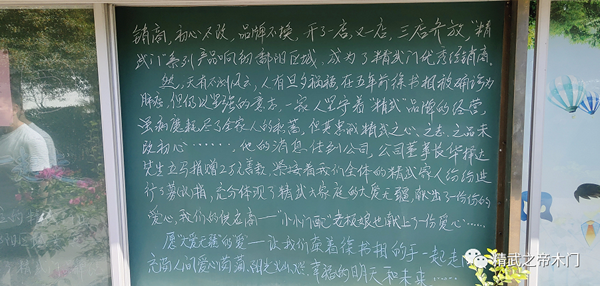 销商,初心不改,品牌不换,开了一店,又一店,三店齐放,"精
武门"系列产品响彻鄱阳区域,成为了精武门优秀经销商。
然,天有不测风云,人有旦夕祸福,在五年前徐书相被确诊为
肺癌,但仍以坚强的意志,一家人坚守着"精武"品牌的经营,
虽病魔耗尽了全家人的积蓄,但其忠诚精武之心、之志、之品未
改初心……,他的消息传到公司,公司董事长华择
先生立马捐赠2万善款,紧接着我们全体的精武家人纷纷进
行了募捐,充分体现了精武大家庭的大爱无疆,献出了一份份的
爱心,我们的供应商——"小小门配"老板娘也献上了一份爱心……
愿大爱无疆的爱——让我们牵着徐书相的手一起走
人间爱心 幸福的明天和未来……
精武之帝木门